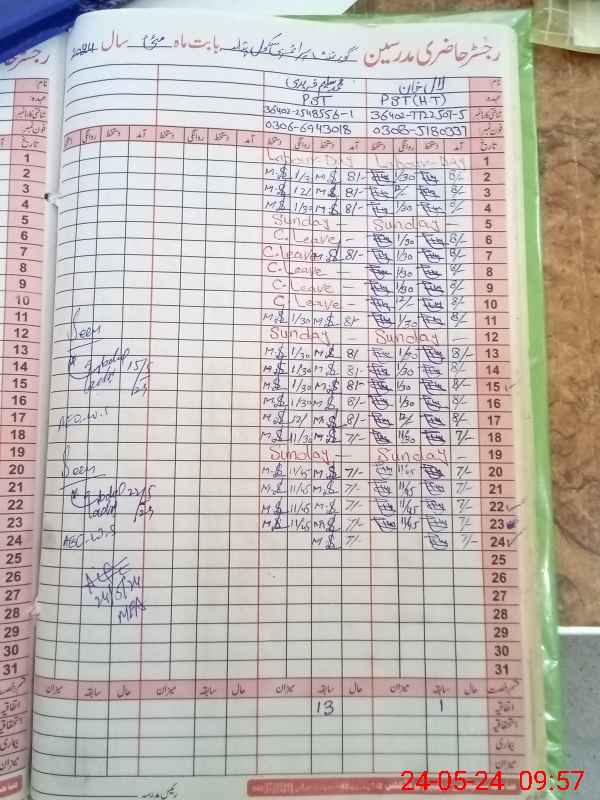 رجسٹر حاضری مدرسین گورنمنٹ پرائمری سکول بابت ماہ مئی سال 2024
نام لال خان
عہدہ PST (HT) PST
شناختی کارڈ نمبر 36402-2548556-1
فون نمبر 0308-5180337 0306-6943018
تاریخ آمد دستخط روانگی دستخط آمد دستخط روانگی دستخط آمد دستخط روانگی دستخط
1 Labour-Day Labour-Day
2 8/- 1/30 8/- M.S 1/30 M.S
3 8/- 12/- 8/- M.S 12/ M.S
4 8/- 1/30 8/- M.S 1/30 M.S
5 Sunday - Sunday -
6 8/- 1/30 C.Leave -
7 8/- 1/30 8/- M.S C.Leave
8 8/- 1/30 C-Leave -
9 8/- 1/30 C-Leave -
10 8/- 12/- C-Leave -
11 8/- 1/30 8/- M.S 1/30 M.S
12 Sunday - Sunday -
13 8/- 1/30 8/ M.S 1/30 M.S
14 8/- 1/30 8/- M.S 1/30 M.S
15 8/- 1/30 8/- M.S 1/30 M.S
16 8/- 1/30 8/- M.S 1/30 M.S
17 8/- 12/- 8/- M.S 12/ M.S
18 7/- 11/30 7/- M.S 11/30 M.S
19 Sunday - Sunday -
20 7/- 11/45 7/- M.S 11/45 M.S
21 7/- 11/45 7/- M.S 11/45 M.S
22 7/- 11/45 7/- M.S 11/45 M.S
23 7/- 11/45 7/- M.S 11/45 M.S
24 7/- 7/- M.S
25
26
27
28
29
30
31
Seen
15/5
Seen
22/5
24/5/24
MEA
قسم رخصت حال سابقہ میزان حال سابقہ میزان حال سابقہ میزان
اتفاقیہ 1 13
استحقاقیہ
بیماری
میزان
رئیس مدرسہ
24-05-24 09:57